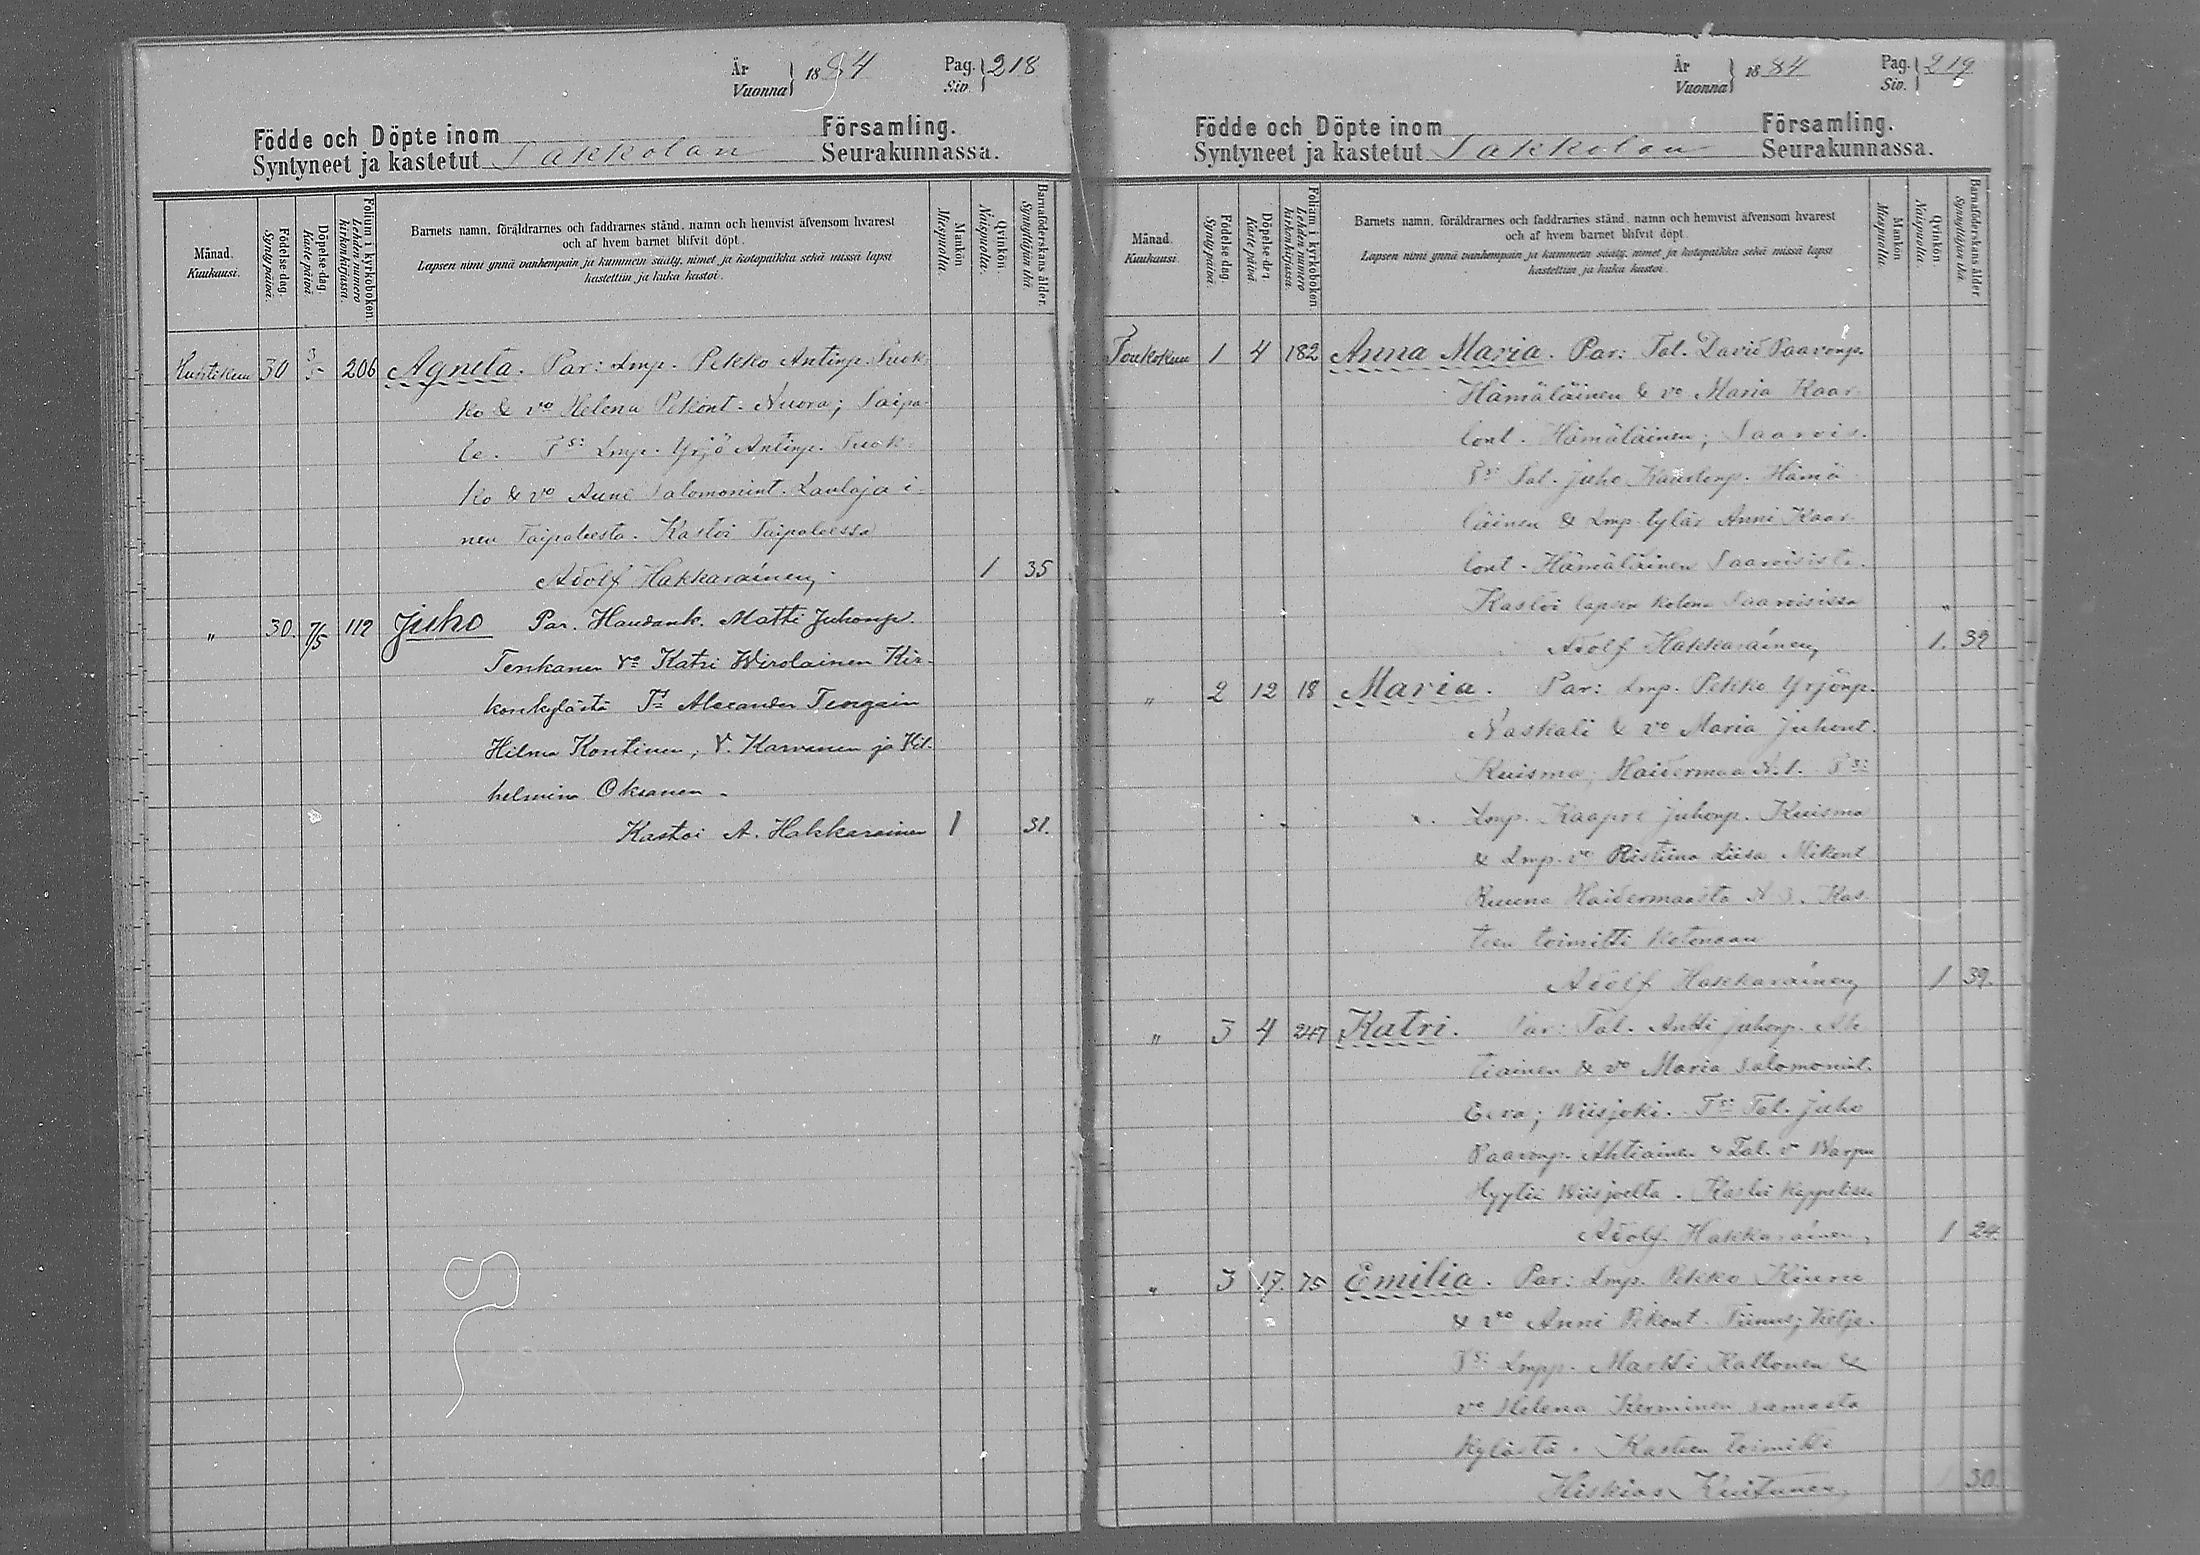 År Vuonna } 1884 Pag. Siv. } 218
Födde och Döpte inom Församling.
Syntyneet ja kastetut Sakkolan Seurakunnassa.
Månad. Kuukausi.
Födelse-dag. Synty-päivä.
Döpelse-dag. Kaste-päivä.
Folium i kyrkoboken. Lehden numero kirkonkirjassa.
Barnets namn, föräldrarnes och faddrarnes stånd, namn och hemvist äfvensom hvarest
och af hvem barnet blifvit döpt.
Lapsen nimi ynnä vanhempain ja kummein sääty, nimet ja kotopaikka sekä missä lapsi
kastettiin ja kuka kastoi.
Mankön Miespuolia.
Qvinkön. Naispuolia.
Barnaföderskans ålder. Synnyttäjän ikä.
Huhtikuu 30 3/5 206 Agneta. Par: Lmp. Pekko Antinp. Tuok-
ko & vo Helena Pekont. Nuora; Taipa-
le. Tsi Lmp. Yrjö Antinp. Tuok-
ko & vo Anni Salomonint. Laulaja i-
nen Taipaleesta. Kastoi Taipaleessa
Adolf Hakkarainen. 1 35
" 30. 7/5 112 Juho Par. Haudank. Matti Juhonp.
Tenkanen Vo Katri Wirolainen Kir-
konkylästä Ts Alexander
Hilma Kontinen, V. Karvanen ja Vil-
helmina Oksanen.
Kastoi A. Hakkarainen 1 31.
År Vuonna } 1884 Pag. Siv. } 219
Födde och Döpte inom Församling.
Syntyneet ja kastetut Sakkolan Seurakunnassa.
Månad. Kuukausi.
Födelse-dag. Synty-päivä.
Döpelse-dag. Kaste-päivä.
Folium i kyrkoboken. Lehden numero kirkonkirjassa.
Barnets namn, föräldrarnes och faddrarnes stånd, namn och hemvist äfvensom hvarest
och af hvem barnet blifvit döpt.
Lapsen nimi ynnä vanhempain ja kummein sääty, nimet ja kotopaikka sekä missä lapsi
kastettiin ja kuka kastoi.
Mankön Miespuolia.
Qvinkön. Naispuolia.
Barnaföderskans ålder Synnyttäjän ikä
Toukokuu 1 4 182 Anna Maria. Par: Tal. David Paavonp.
Hämäläinen & vo Maria Kaar-
lont. Hämäläinen; Saarois.
Tsi Tal. Juho Kaarlonp. Hämä-
läinen & Lmp. tytär Anni Kaar-
lont. Hämäläinen Saaroisista.
Kastoi lapsen kotona Saaroisissa
Adolf Hakkarainen, 1. 39
" 2 12 18 Maria. Par: Lmp. Pekko Yrjönp.
Naskali & vo Maria Juhont.
Kuisma; Haidermaa N. 1. Tsi
Lmp. Kaapre Juhonp. Kuisma
& Lmp. vo Ristiina Liisa Mikont
Ruuna Haidermaasta N 3. Kas-
teen toimitti kotonaan
Adolf Hakkarainen, 1 39.
" 3 4 247 Katri. Par: Tal. Antti Juhonp. Ah-
tiainen & vo Maria Salomonint.
Eeva; Wiisjoki. Tsi Tal. Juho
Paavonp. Ahtiainen & Tal. v Warpu
Hyytiä Wiisjoelta. Kastoi Kappelissa
Adolf Hakkarainen, 1 24.
" 3 17. 75 Emilia. Par: Lmp. Pekko Kiuru
& vo Anni Pekont. Tiinus; Kelja.
Tsi Lmpp. Martti Kaltonen &
vo Helena Kerminen samasta
kylästä. Kasteen toimitti
Hiskias Kuitunen, 30.